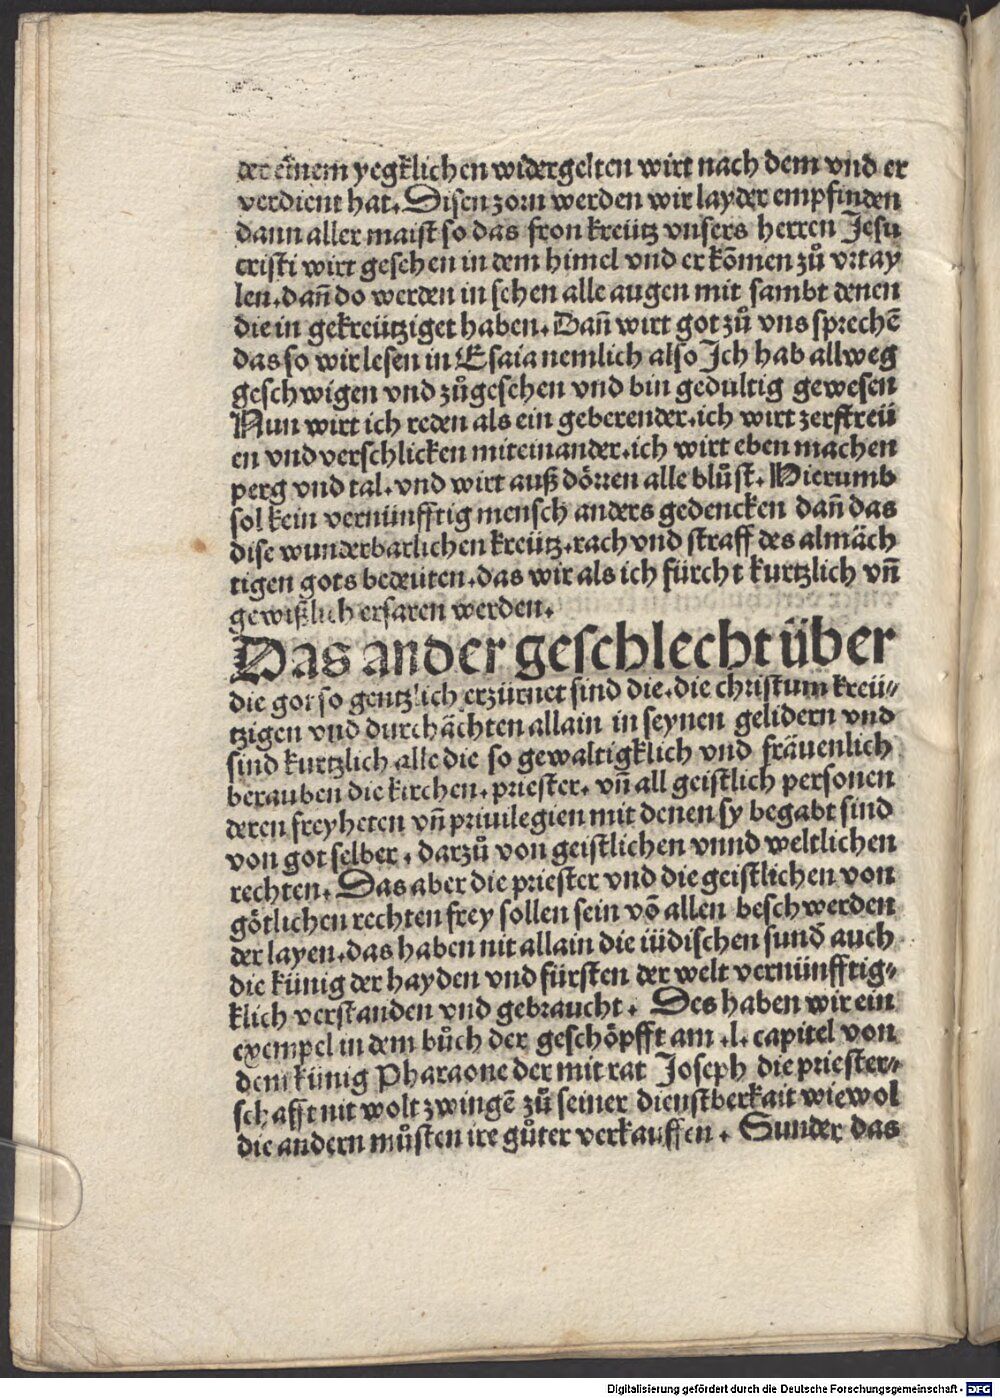 der einem yegklichen widergelten wirt nach dem vnd er
verdient hat. Disen zorn werden wir layder empfinden
dann aller maist so das fron kreütz vnsers herren Jesu
cristi wirt gesehen in dem himel vnd er kōmen zů vrtay
len. dañ do werden in sehen alle augen mit sambt denen
die in gekreütziget haben. Dañ wirt got zů vns sprechē
das so wir lesen in Esaia nemlich also Jch hab allweg
geschwigen vnd zůgesehen vnd bin gedultig gewesen
Nun wirt ich reden als ein geberender. ich wirt zerstreü
en vnd verschlicken miteinander. ich wirt eben machen
perg vnd tal. vnd wirt auß dörren alle blůst. Hierumb
sol kein vernünfftig mensch anders gedencken dañ das
dise wunderbarlichen kreütz. rach vnd straff des almäch
tigen gots bedeüten. das wir als ich fürcht kurtzlich vñ
gewißlich erfaren werden.
Das ander geschlecht über
die got so gentzlich erzürnet sind die. die christum kreü⸗
tzigen vnd durchächten allain in seynen gelidern vnd
sind kurtzlich alle die so gewaltigklich vnd fräuenlich
berauben die kirchen. priester. vñ all geistlich personen
deren freyheten vñ priuilegien mit denen sy begabt sind
von got selber. darzů von geistlichen vnnd weltlichen
rechten. Das aber die priester vnd die geistlichen von
götlichen rechten frey sollen sein vō allen beschwerden
der layen. das haben nit allain die iüdischen sund̄ auch
die künig der hayden vnd fürsten der welt vernünfftig⸗
klich verstanden vnd gebraucht. Des haben wir ein
exempel in dem bůch der geschöpfft am .l. capitel von
dem künig Pharaone der mit rat Joseph die priester⸗
schafft nit wolt zwingē zů seiner dienstberkait wiewol
die andern můsten ire gůter verkauffen. Sunder das
Digitalisierung gefördert durch die Deutsche Forschungsgemeinschaft - DFG